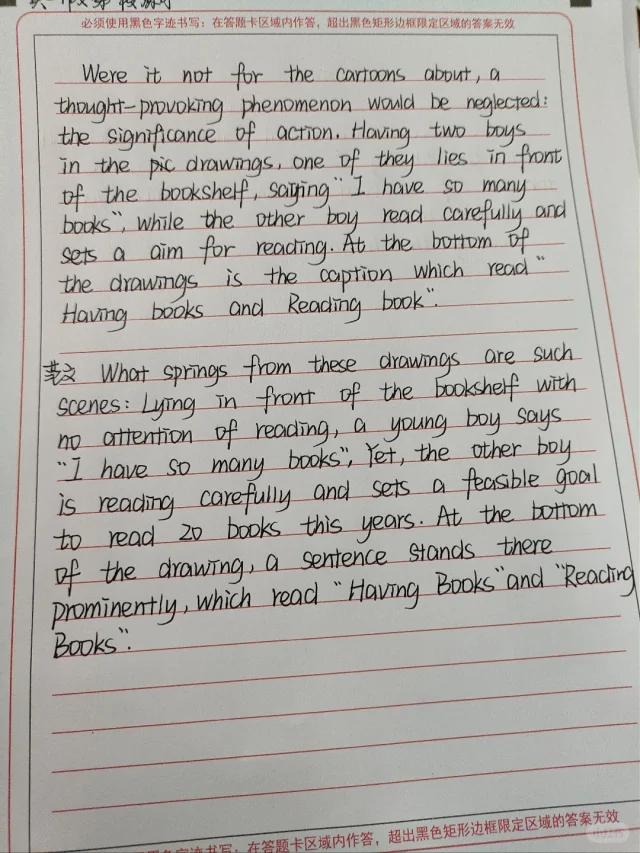 必须使用黑色字迹书写：在答题卡区域内作答，超出黑色矩形边框限定区域的答案无效
Were it not for the cartoons about, a
thought-provoking phenomenon would be neglected:
the significance of action. Having two boys
in the pic drawings, one of they lies in front
of the bookshelf, saying "I have so many
books", while the other boy read carefully and
sets a aim for reading. At the bottom of
the drawings is the caption which read "
Having books and Reading book".
范文 What springs from these drawings are such
scenes: Lying in front of the bookshelf with
no attention of reading, a young boy says
"I have so many books", Yet, the other boy
is reading carefully and sets a feasible goal
to read 20 books this years. At the bottom
of the drawing, a sentence stands there
prominently, which read "Having Books" and "Reading
Books".
字迹书写：在答题卡区域内作答，超出黑色矩形边框限定区域的答案无效